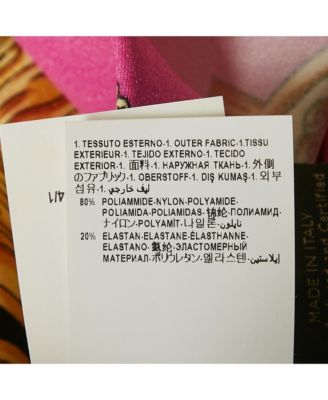 1. TESSUTO ESTERNO-1. OUTER FABRIC-1.TISSU
EXTERIEUR-1. TEJIDO EXTERNO-1. TECIDO
EXTERIOR-1. 面料-1. НАРУЖНАЯ ТКАНЬ-1. 外側
のファブリック-1. OBERSTOFF-1. DIŞ KUMAŞ-1. 외부
섬유-1. ليف خارجي
80% POLIAMMIDE-NYLON-POLYAMIDE-
POLIAMIDA-POLIAMIDAS-锦纶-ПОЛИАМИД-
ナイロン-POLYAMİT-나일론-نايلون
20% ELASTAN-ELASTANE-ÉLASTHANNE-
ELASTANO-氨纶-ЭЛАСТОМЕРНЫЙ
МАТЕРИАЛ-ポリウレタン-엘라스텐-إيلاستين
4/1
MADE IN ITALY